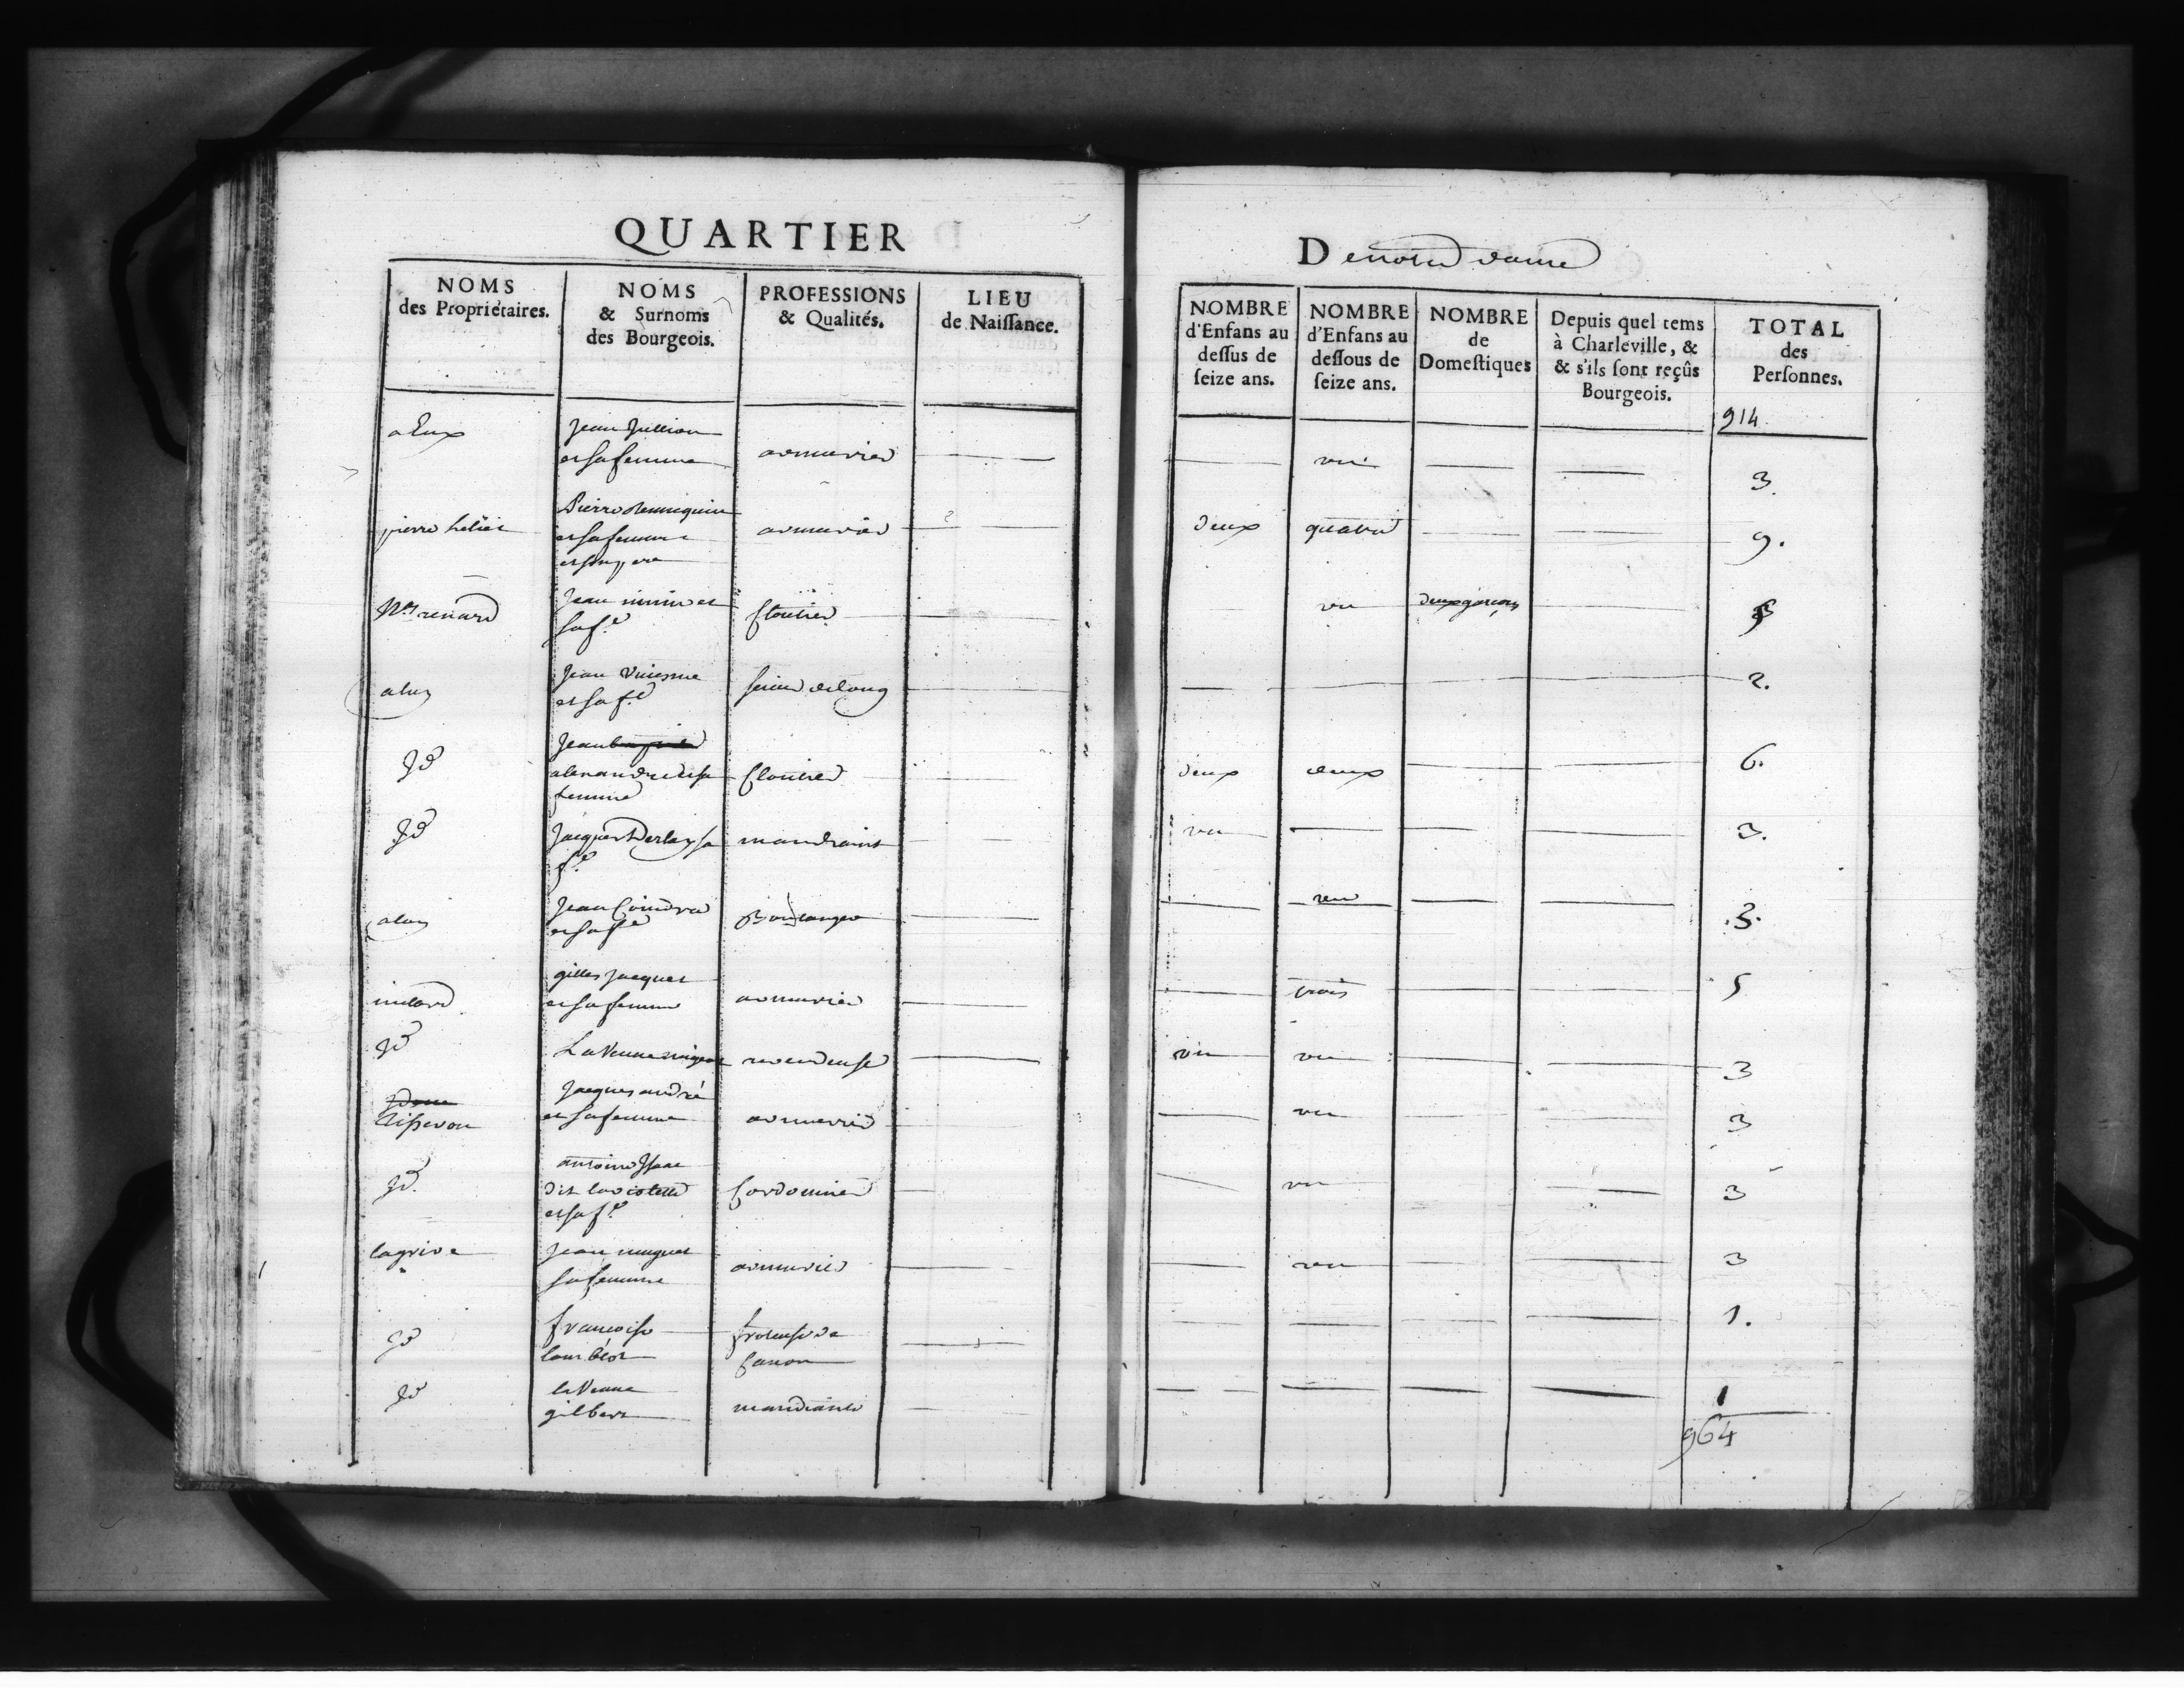 QUARTIER
De notre dame
NOMS des Propriétaires.
NOMS & Surnoms des Bourgeois.
PROFESSIONS & Qualités.
LIEU de Naissance.
NOMBRE d'Enfans au dessus de seize ans.
NOMBRE d'Enfans au dessous de seize ans.
NOMBRE de Domestiques
Depuis quel tems à Charleville, & & s'ils sont reçûs Bourgeois.
TOTAL des Personnes.
914
a Eux
Jean Jullion
et sa femme
armurier
un
3.
pierre
Pierre
et sa femme
et son pere
armurier
deux
quatre
9.
renard
Jean
sa f.e
Cloutier
un
deux garcons
a luy
Jean
et sa f.e
scieur de long
2.
Jd
Jean
alexandre et sa
femme
Cloutier
deux
deux
6.
Jd
Jacques sa
f.e
mandiant
un
3.
a luy
Jean Coindre
et sa f.e
Boulanger
un
.3.
gilles Jacquet
et sa femme
armurier
trois
5
Jd
La Veuve
revendeuse
un
un
3
Jacques andré
et sa femme
armurier
un
3
Jd.
antoine Isaac
dit laviolette
et sa f.e
Cordonnier
un
3
lagrive
Jean
sa femme
armurier
un
3
Jd
francoise
lambert
froteuse de
Canon
1.
Jd
la Veuve
gilbert
mandiante
1
964